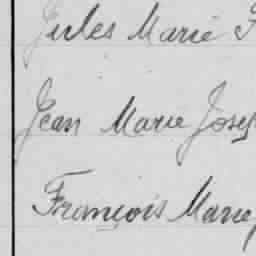 Jules Marie
Jean Marie Josep
François Marie